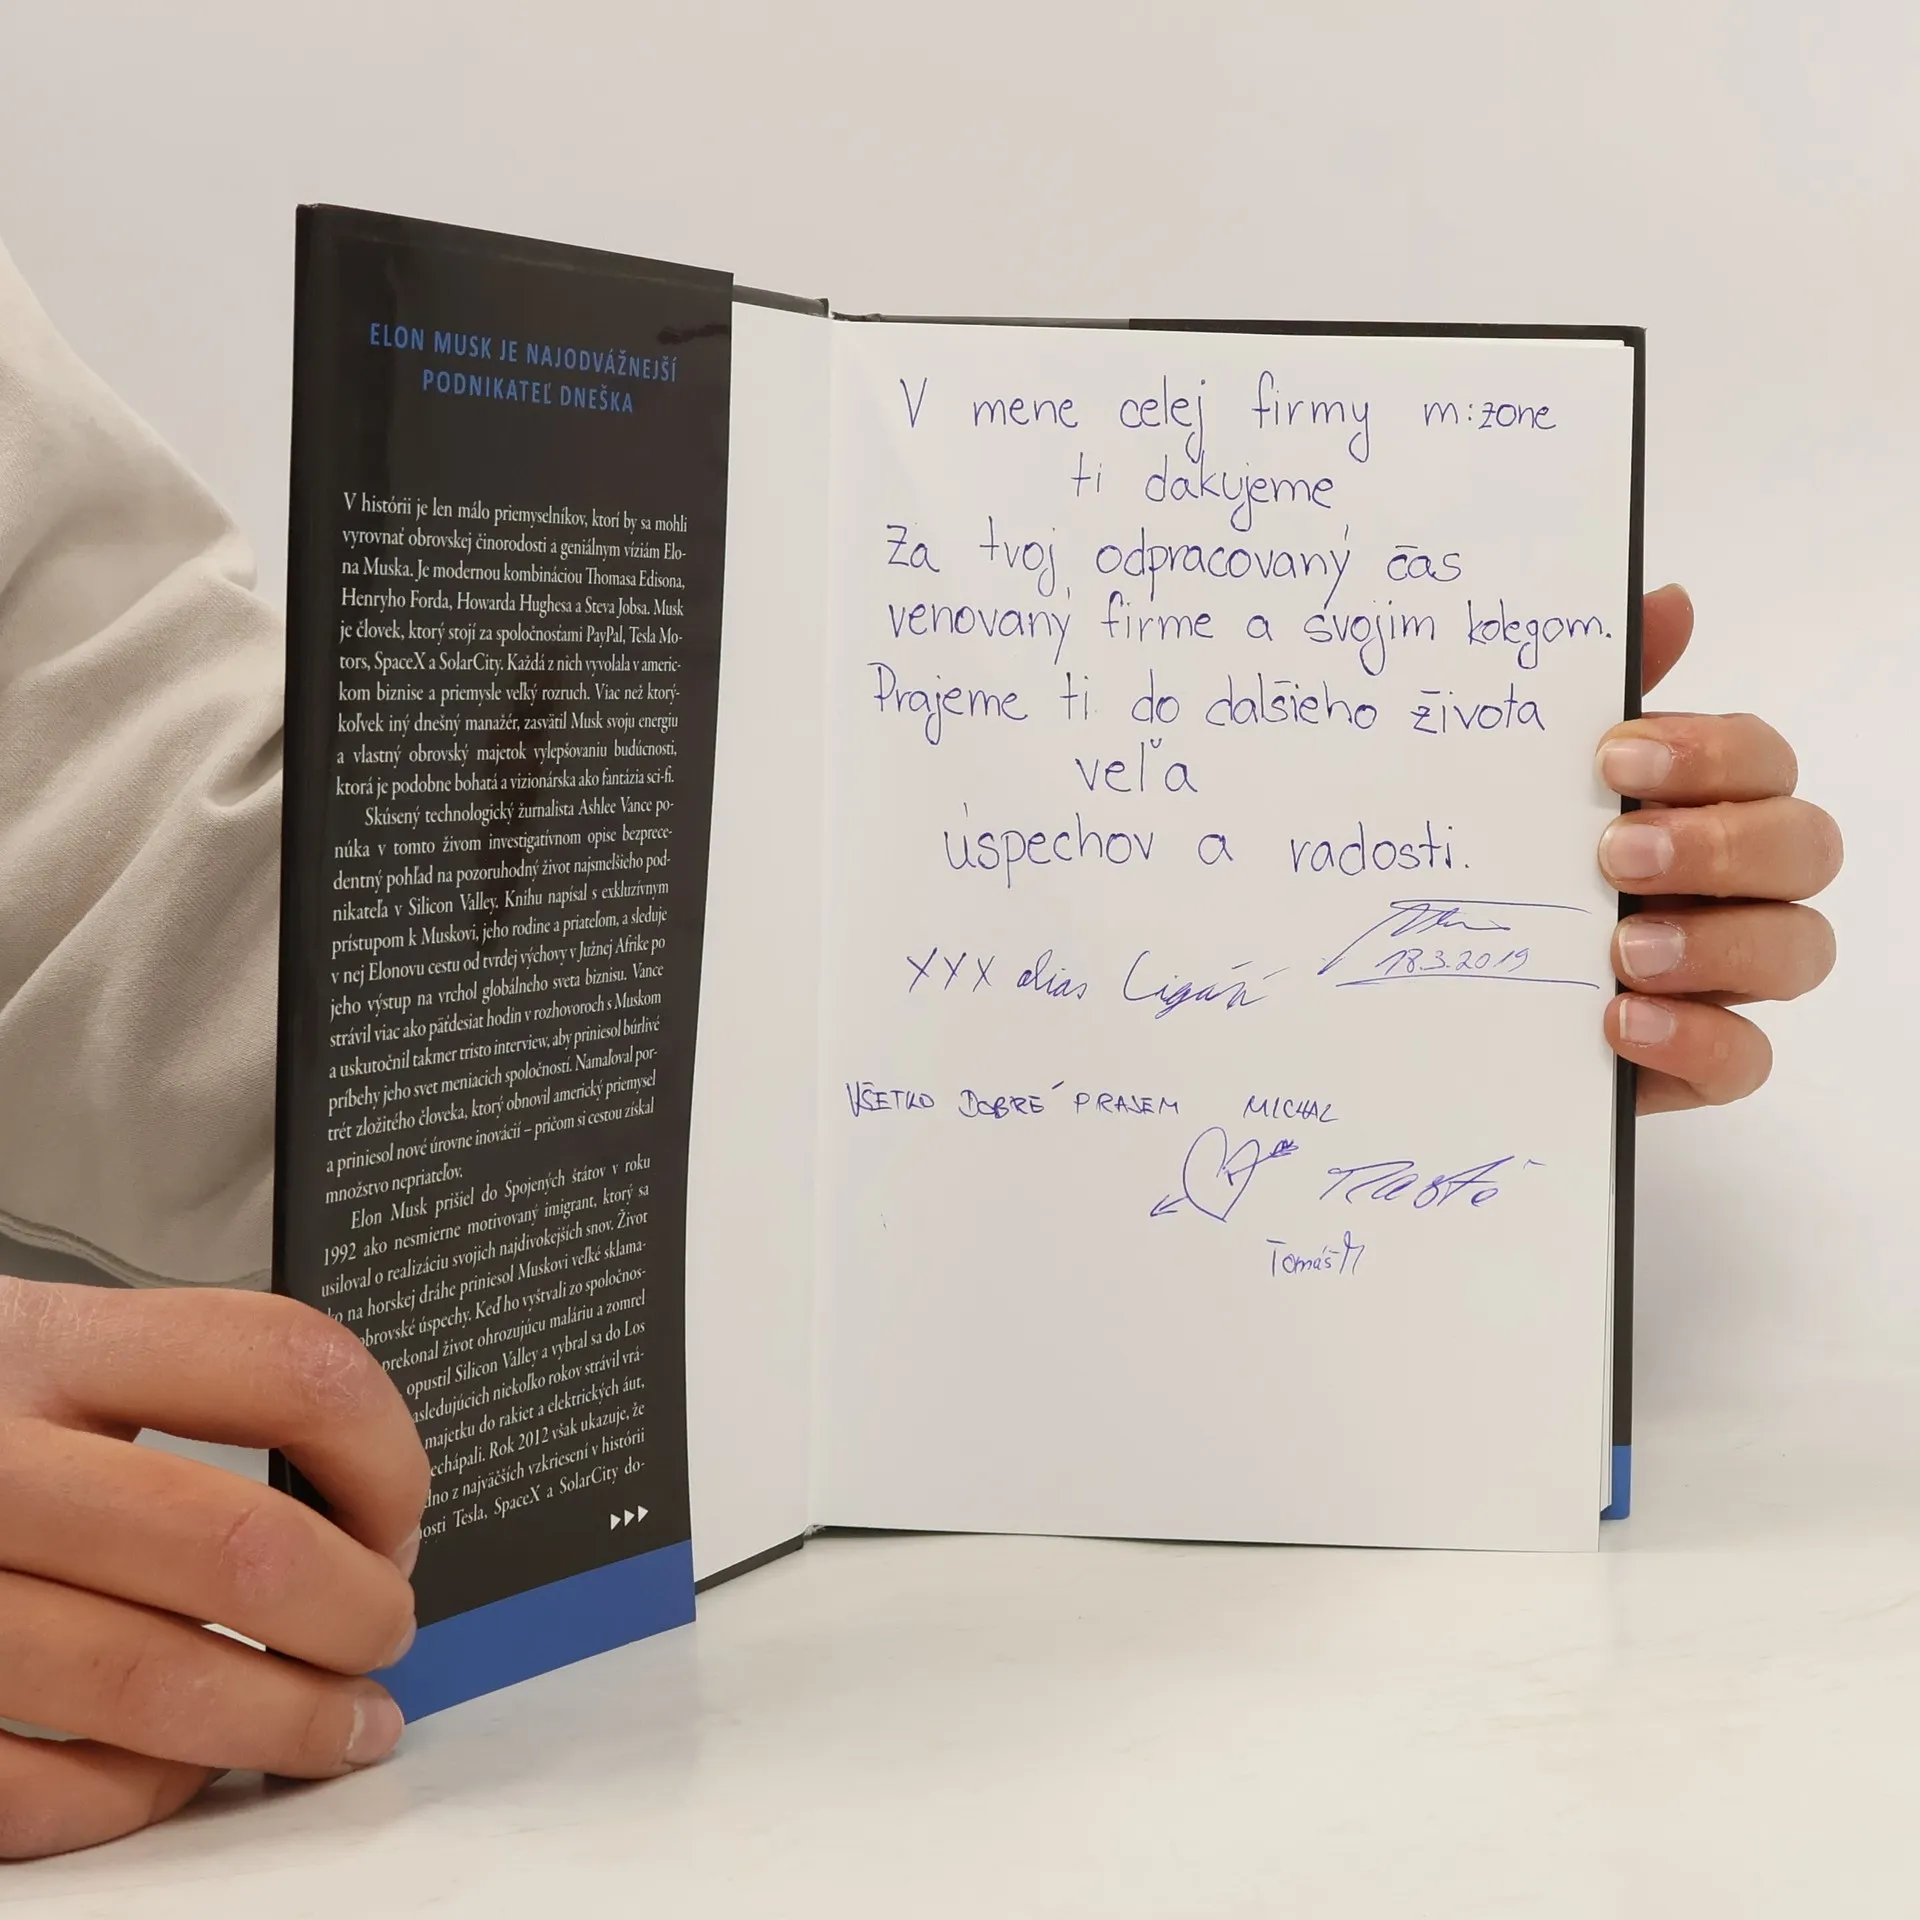 ELON MUSK JE NAJODVÁŽNEJŠÍ
PODNIKATEĽ DNEŠKA
V histórii je len málo priemyselníkov, ktorí by sa mohli
vyrovnať obrovskej činorodosti a geniálnym víziám Elo-
na Muska. Je modernou kombináciou Thomasa Edisona,
Henryho Forda, Howarda Hughesa a Steva Jobsa. Musk
je človek, ktorý stojí za spoločnosťami PayPal, Tesla Mo-
tors, SpaceX a SolarCity. Každá z nich vyvolala v americ-
kom biznise a priemysle veľký rozruch. Viac než ktorý-
koľvek iný dnešný manažér, zasvätil Musk svoju energiu
a vlastný obrovský majetok vylepšovaniu budúcnosti,
ktorá je podobne bohatá a vizionárska ako fantázia sci-fi.
Skúsený technologický žurnalista Ashlee Vance po-
núka v tomto živom investigatívnom opise bezprece-
dentný pohľad na pozoruhodný život najsmelšieho pod-
nikateľa v Silicon Valley. Knihu napísal s exkluzívnym
prístupom k Muskovi, jeho rodine a priateľom, a sleduje
v nej Elonovu cestu od tvrdej výchovy v Južnej Afrike po
jeho výstup na vrchol globálneho sveta biznisu. Vance
strávil viac ako päťdesiat hodín v rozhovoroch s Muskom
a uskutočnil takmer tristo interview, aby priniesol búrlivé
príbehy jeho svet meniacich spoločností. Namaľoval por-
trét zložitého človeka, ktorý obnovil americký priemysel
a priniesol nové úrovne inovácií – pričom si cestou získal
množstvo nepriateľov.
Elon Musk prišiel do Spojených štátov v roku
1992 ako nesmierne motivovaný imigrant, ktorý sa
usiloval o realizáciu svojich najdivokejších snov. Život
ko na horskej dráhe priniesol Muskovi veľké sklama-
obrovské úspechy. Keď ho vyštvali zo spoločnos-
prekonal život ohrozujúcu maláriu a zomrel
opustil Silicon Valley a vybral sa do Los
asledujúcich niekoľko rokov strávil vrá-
majetku do rakiet a elektrických áut,
echápali. Rok 2012 však ukazuje, že
dno z najväčších vzkriesení v histórii
nosti Tesla, SpaceX a SolarCity do-
V mene celej firmy m:zone
ti dakujeme
Za tvoj odpracovaný čas
venovaný firme a svojim kolegom.
Prajeme ti do dalšieho života
veľa
úspechov a radosti.
18.3.2019
XYX alias Cigáň
VŠETKO DOBRÉ PRAJEM MICHAL
Tomáš M